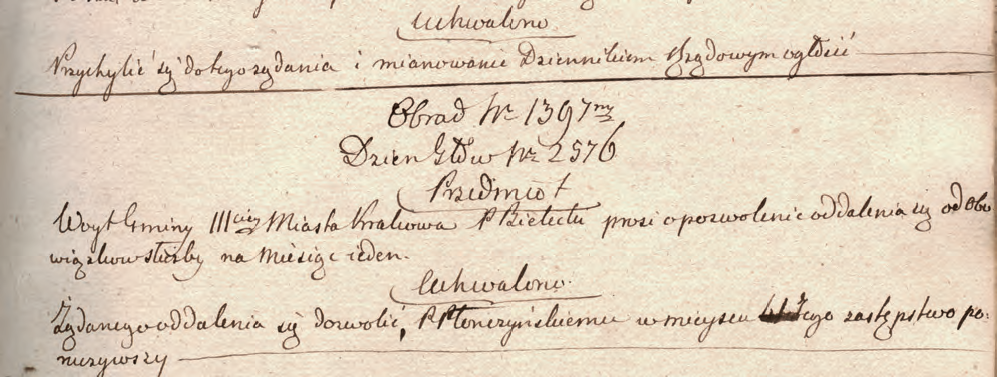 Uchwalono
Przychylić się do tego żądania i mianowanie Dziennikiem Rządowym ogłosić
Obrad Nr 1397ny
Dzien Głów Nr 2576
Przedmiot
Woyt Gminy IIIciey Miasta Krakowa P. Bielecki prosi o pozwolenie oddalenia się od obo
wiązkow służby na Miesiąc ieden.
Uchwalono.
Żądanego oddalenia się dozwolić, P. Płonczyńskiemu w mieyscu Iego zastępstwo po-
ruczywszy